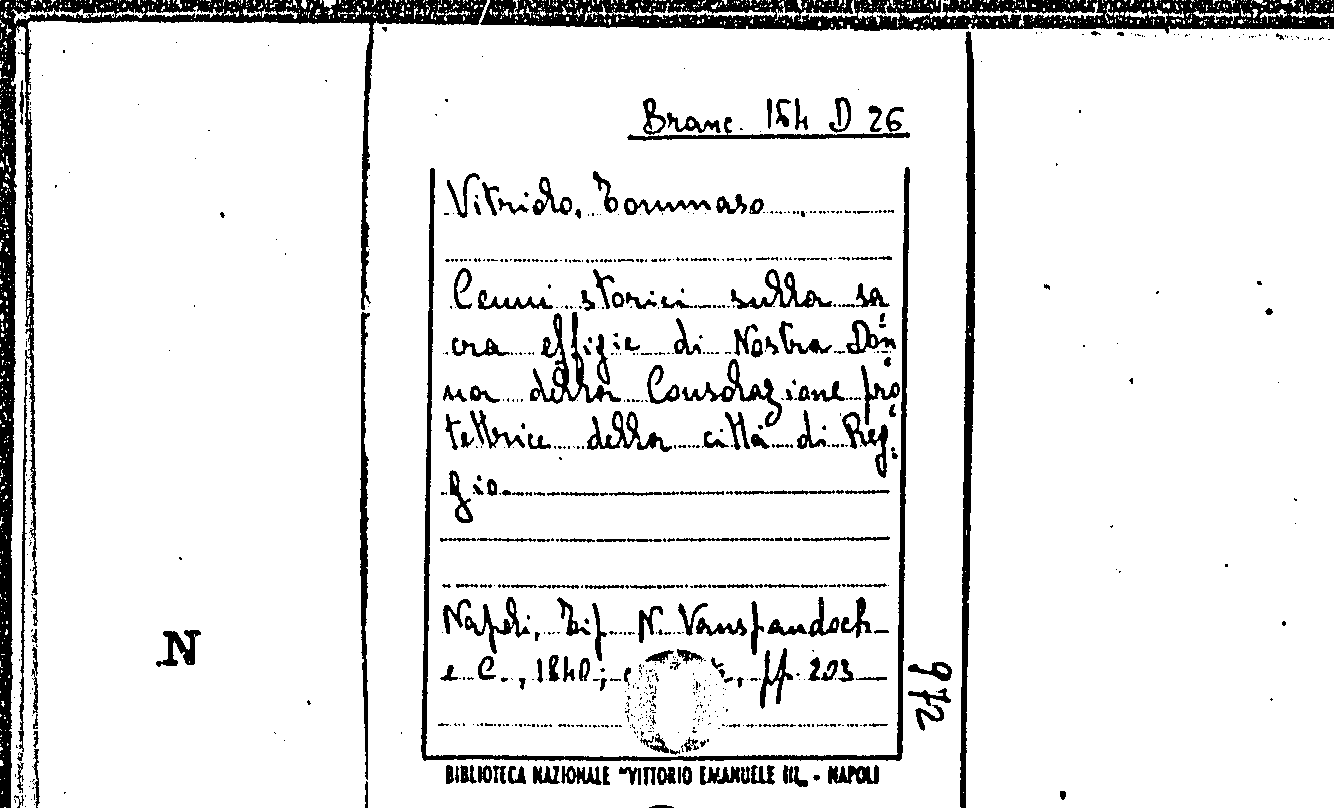 Branc. 154 D 26
Vitriolo, Tommaso
Cenni storici sulla sa
cra effigie di Nostra Don
na della Consolazione pro
tettrice della città di Reg:
gio.
Napoli, Tip. N. Vanspandoch
e C., 1840; , pp. 203
972
.N
BIBLIOTECA NAZIONALE "VITTORIO EMANUELE III„ - NAPOLI